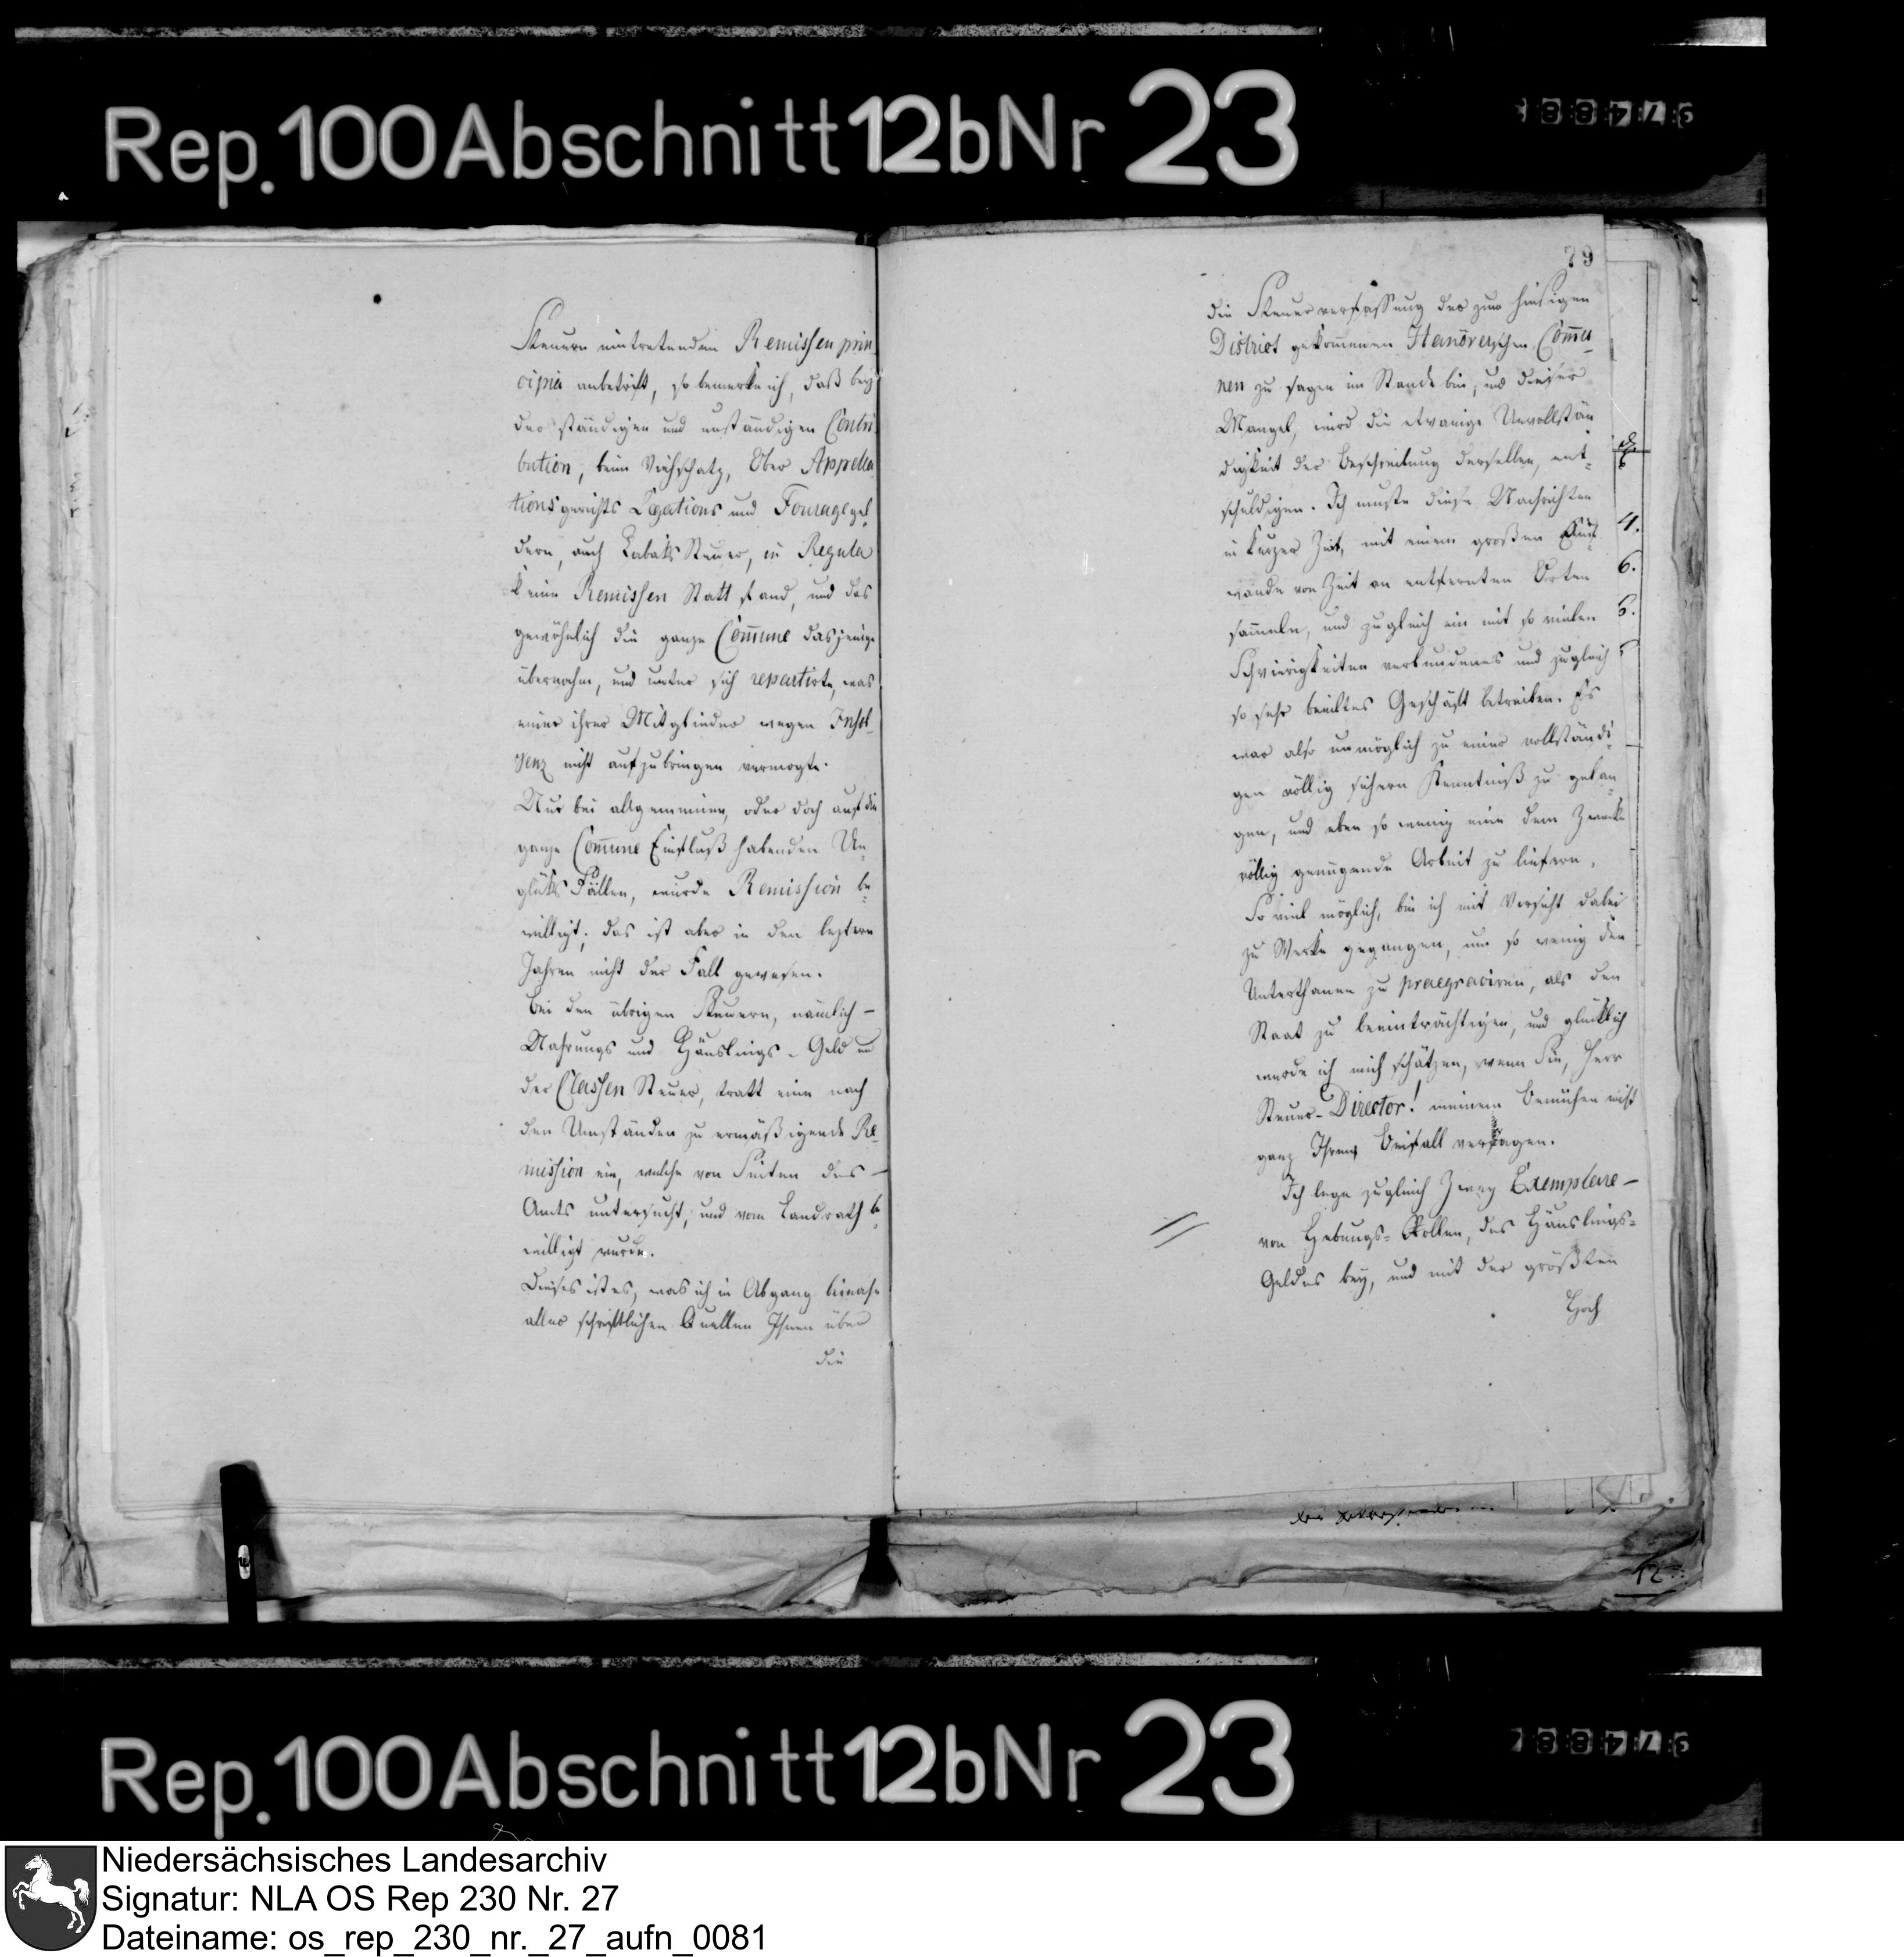 Rep. 100 Abschnitt 12b Nr 23
Steuern eintretenden Remissen prin
cipia anbetrift, so bemerke ich, daß bey
der ständigen und unständigen Contri
bution, beim Viehschatz, Ober Appella
tionsgerichts Legations und Fouragegel
dern, auch Tabaks Steuer, in Regula
keine Remissen Statt fand, und das
gewöhnlich die ganze Com̅une dasjenige
übernahm, und unter sich repartirte, was
einer ihrer Mitglieder wegen Insol-
venz nicht aufzubringen vermogte.
Nur bei allgemeiner, oder doch auf die
ganze Com̅une Einfluß habenden Un-
glüks Fällen, wurde Remission be-
willigt; das ist aber in den leztern
Jahren nicht der Fall gewesen.
Bei den übrigen Steuern, nämlich –
Nahrungs und Häuslings-Geld und
der Classen Steuer, tratt eine nach
den Umständen zu ermäßigende Re-
mission ein, welche von Seiten des –
Amts untersucht, und vom Landrath be-
willigt wurde.
Dieses ist es, was ich in Abgang beinahe
aller schriftlichen Quellen Ihnen über
die
79
die Steuerverfassung der zum hiesigen
District gekom̅enen Hanöverschen Com̅u-
nen zu sagen im Stande bin, und dieser
Mangel, wird die etwanige Unvollstän
digkeit der Beschreibung derselben, ent-
schuldigen. Ich muste diese Nachrichten
in kurzer Zeit, mit einem großen Auf-
wande von Zeit an entfernten Orten
sam̅eln, und zugleich ein mit so vielen
Schwierigkeiten verbundenes und zugleich
so sehr beeiltes Geschäft betreiben. Es
war also unmöglich zu einer vollständi-
gen völlig sichern Kenntniß zu gelan-
gen, und eben so wenig eine dem Zwecke
völlig genügende Arbeit zu liefern.
So viel möglich, bin ich mit Vorsicht dabei
zu Werke gegangen, um so wenig den
Unterthanen zu praegraviren, als den
Staat zu beeinträchtigen, und glücklich
werde ich mich schätzen, wenn Sie, Herr
Steuer-Director! meinem Bemühen nicht
ganz Ihren Beifall versagen.
Ich lege zugleich Zwey Exemplare –
von Hebungs-Rollen, des Häuslings-
Geldes bey, und mit der größten
Hoch
4.
6.
12
Rep. 100 Abschnitt 12b Nr 23
Niedersächsisches Landesarchiv
Signatur: NLA OS Rep 230 Nr. 27
Dateiname: os_rep_230_nr._27_aufn_0081